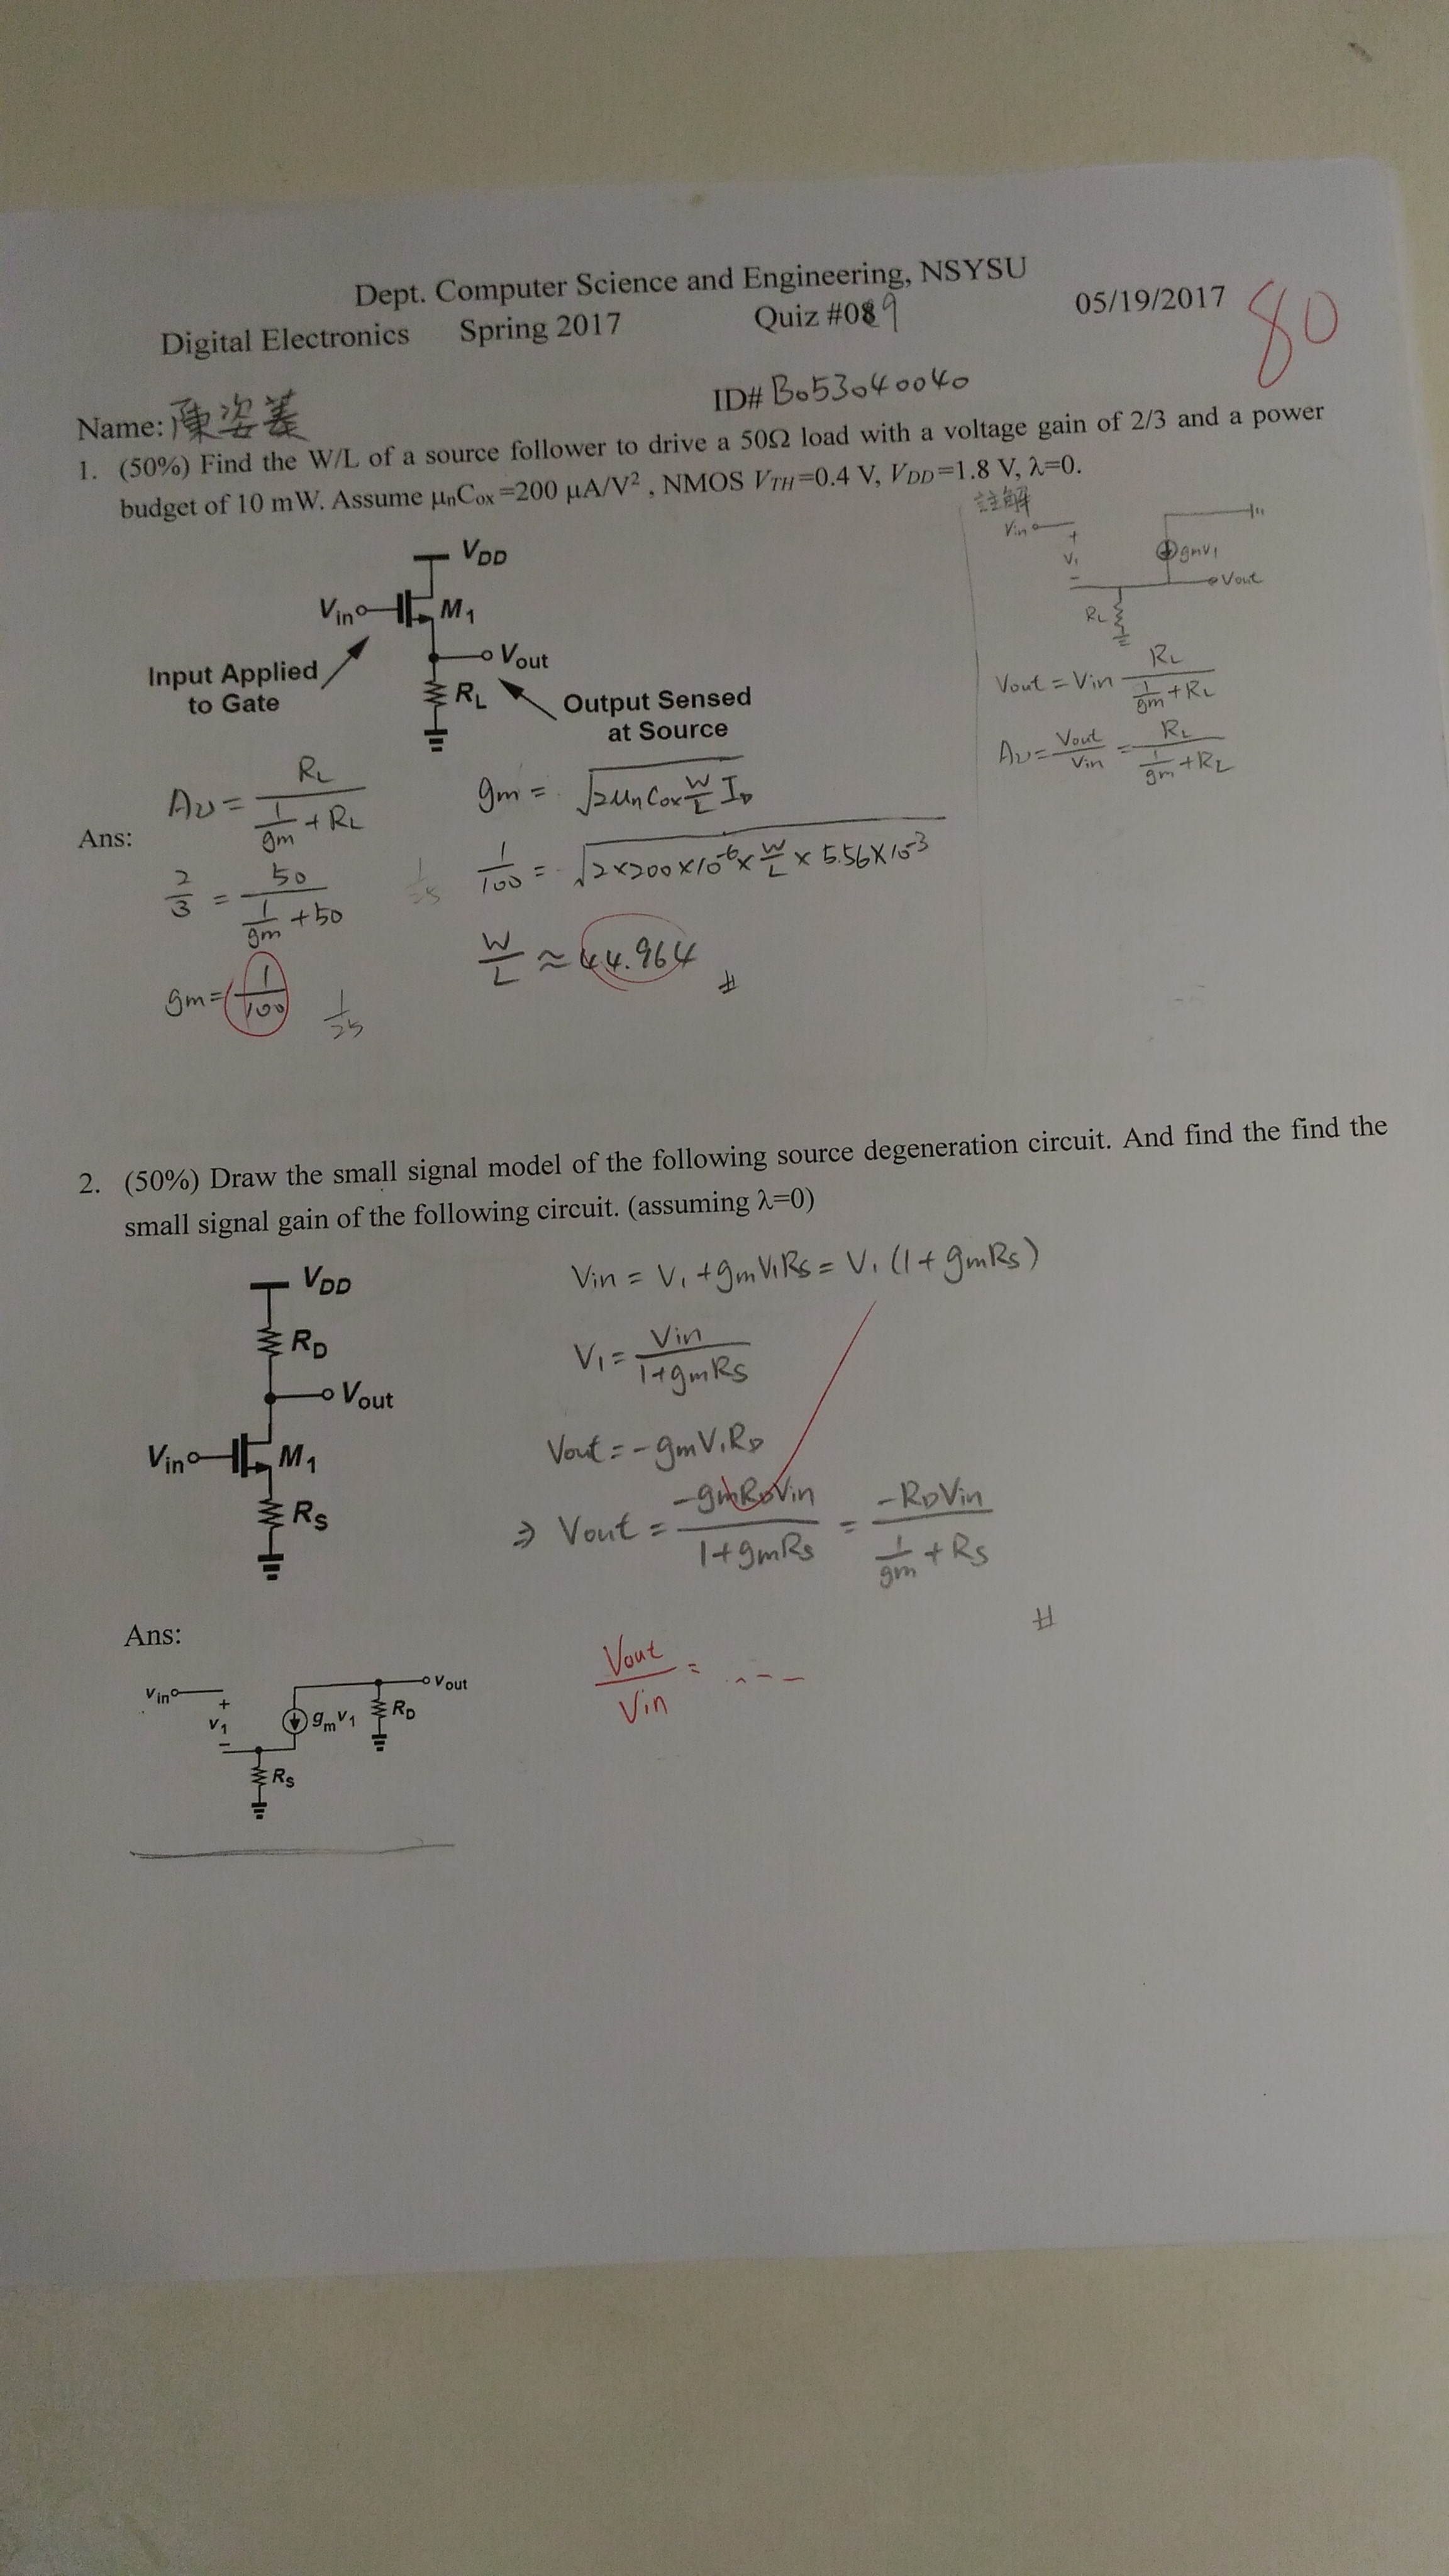 Dept. Computer Science and Engineering, NSYSU
Digital Electronics Spring 2017 Quiz #089 05/19/2017 80
Name: 陳姿蓁 ID# B053040040
1. (50%) Find the W/L of a source follower to drive a 50Ω load with a voltage gain of 2/3 and a power
budget of 10 mW. Assume μnCox =200 μA/V² , NMOS VTH=0.4 V, VDD=1.8 V, λ=0.
註解
Vin + V1 - gmV1 Vout RL
Vout = Vin RL / (1/gm + RL)
Av = Vout/Vin = RL / (1/gm + RL)
VDD
Vin M1
Vout
Input Applied
to Gate
RL
Output Sensed
at Source
Ans:
Av = RL / (1/gm + RL)
2/3 = 50 / (1/gm + 50)
1/25
gm = 1/100 1/25
gm = √(2μnCox W/L ID)
1/100 = √(2×200×10^-6 × W/L × 5.56×10^-3)
W/L ≈ 44.964 #
2. (50%) Draw the small signal model of the following source degeneration circuit. And find the find the
small signal gain of the following circuit. (assuming λ=0)
VDD
RD
Vout
Vin M1
RS
Vin = V1 + gmV1RS = V1 (1 + gmRS)
V1 = Vin / (1+gmRS)
Vout = -gmV1RD
⇒ Vout = -gmRDVin / (1+gmRS) = -RDVin / (1/gm + RS)
#
Ans:
Vin + v1 - gmv1 RD Vout
RS
Vout/Vin = ----